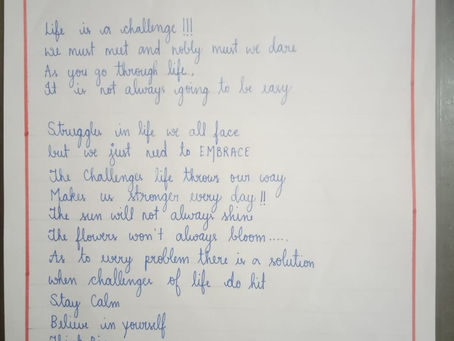 Life is a challenge!!!
we must meet and nobly must we dare
As you go through life,
It is not always going to be easy
Struggles in life we all face
but we just need to EMBRACE
The Challenges life throws our way
Makes us stronger every day!!
The sun will not always shine
The flowers won't always bloom.....
As to every problem there is a solution
when challenges of life do hit
Stay Calm
Believe in yourself